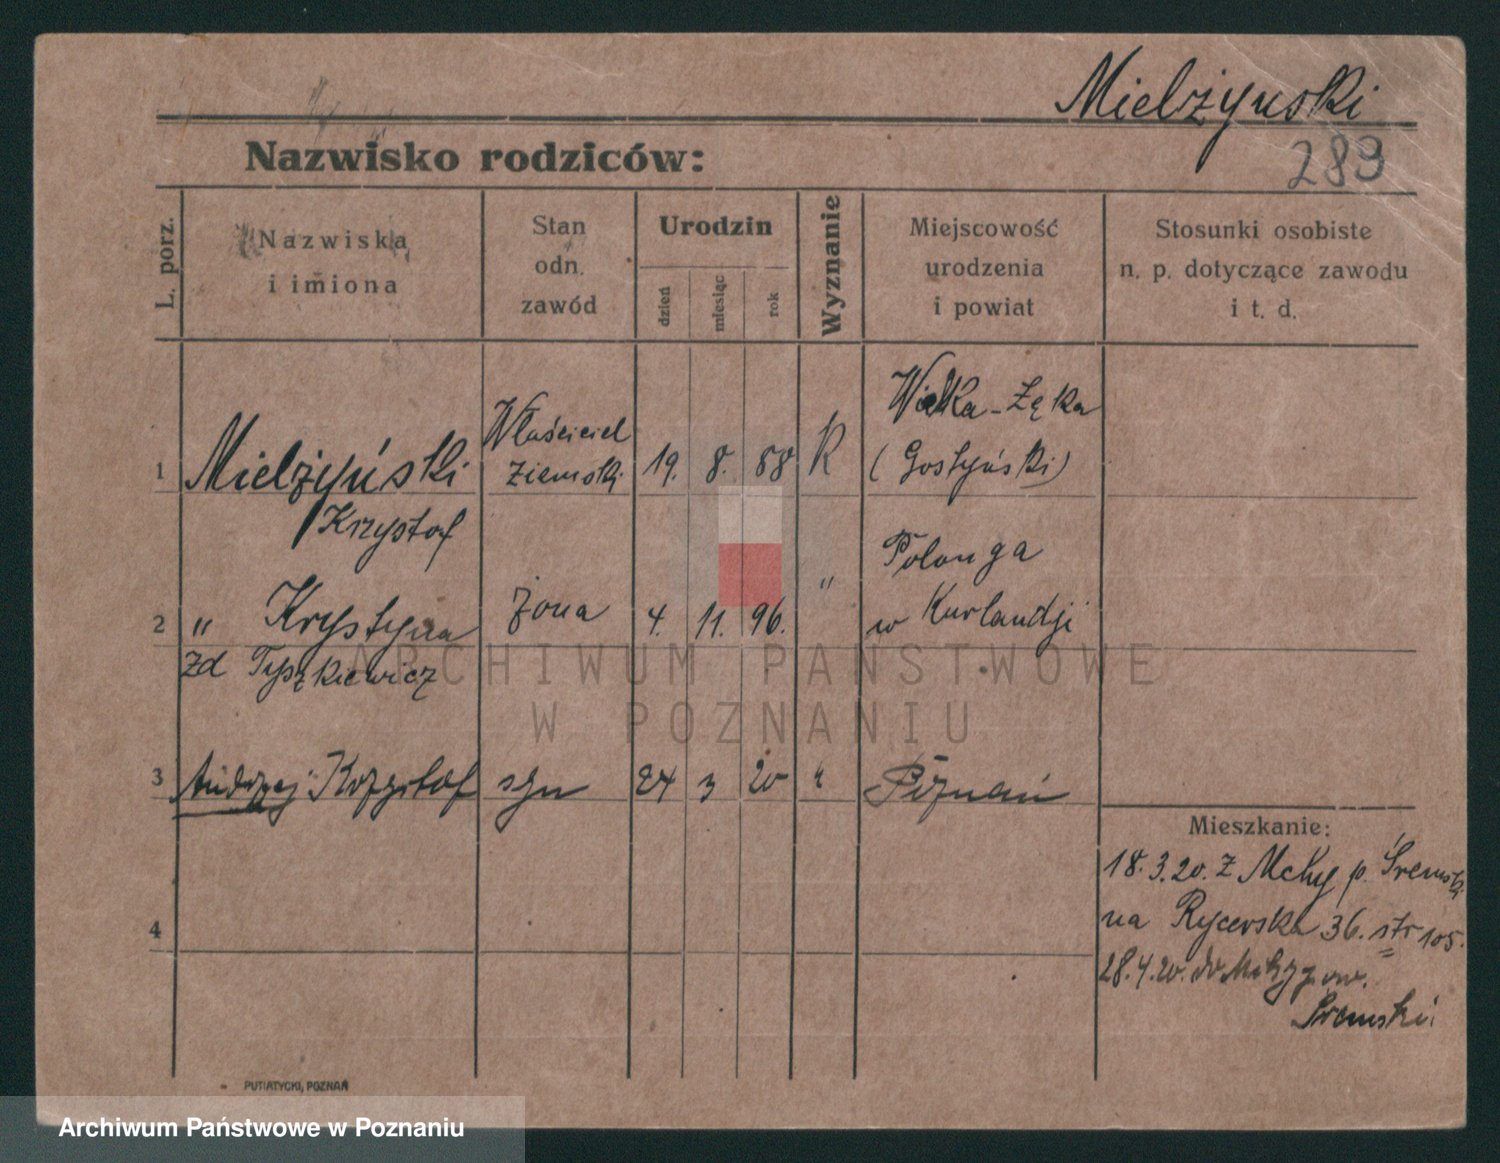 Mielżyński
289
Nazwisko rodziców:
L. porz.
Nazwiska
i imiona
Stan
odn.
zawód
Urodzin
dzień
miesiąc
rok
Wyznanie
Miejscowość
urodzenia
i powiat
Stosunki osobiste
n. p. dotyczące zawodu
i t. d.
1
Mielżyński
Krzystof
Właściciel
ziemski
19. 8. 88
R
Wielka-Łęka
(Gostyński)
2
" Krystyna
zd Tyszkiewicz
żona
4. 11. 96.
"
Polonga
w Kurlandji
3
Andrzej Krzystof
syn
24 3 20
"
Poznań
4
Mieszkanie:
18.3.20. z Mchy p. Śremski
na Rycerska 36. str 105.
28.4.20. do Mchy pow.
Śremski.
PUTIATYCKI, POZNAŃ
ARCHIWUM PAŃSTWOWE
W POZNANIU
Archiwum Państwowe w Poznaniu